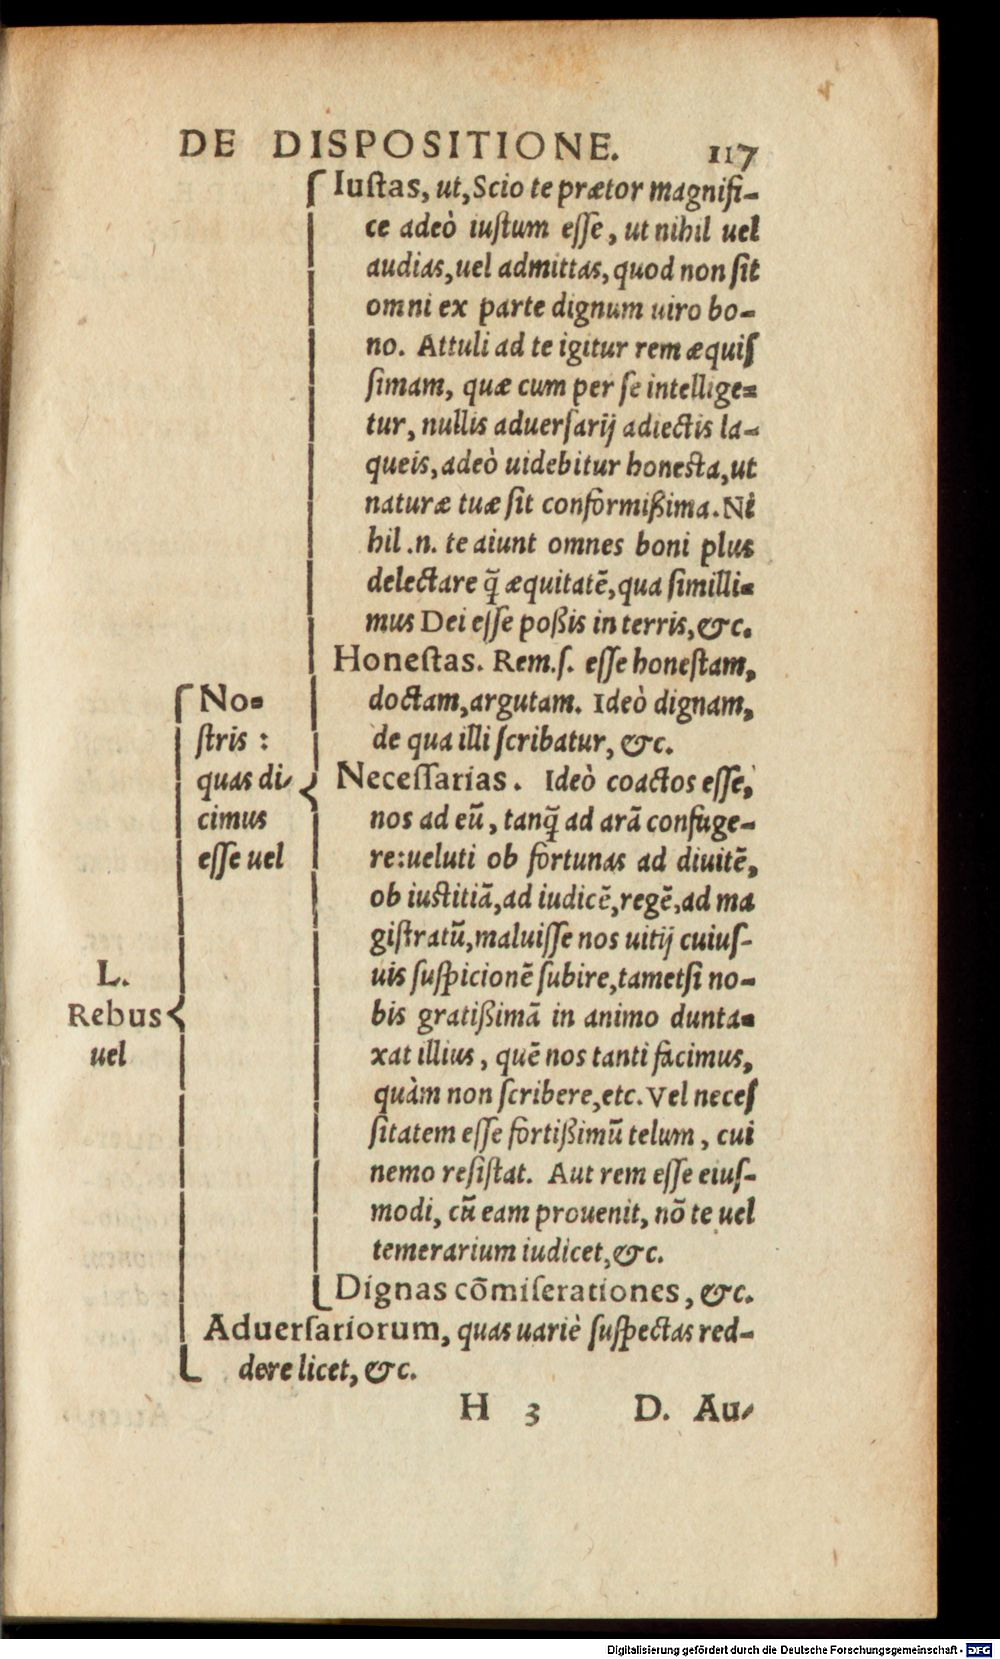 DE DISPOSITIONE. 117
Iuſtas, ut, Scio te prætor magnifi-
ce adeò iuſtum eſſe, ut nihil uel
audias, uel admittas, quod non ſit
omni ex parte dignum uiro bo-
no. Attuli ad te igitur rem æquiſ
ſimam, quæ cum per ſe intellige-
tur, nullis aduerſarij adiectis la-
queis, adeò uidebitur honesta, ut
naturæ tuæ ſit conformißima. Ni
hil .n. te aiunt omnes boni plus
delectare q̃ æquitatẽ, qua ſimilli-
mus Dei eſſe poßis in terris, &c.
Honeſtas. Rem.ſ. eſſe honeſtam,
doctam, argutam. Ideò dignam,
de qua illi ſcribatur, &c.
Neceſſarias. Ideò coactos eſſe,
nos ad eũ, tanq̃ ad arã confuge-
re: ueluti ob fortunas ad diuitẽ,
ob iuſtitiã, ad iudicẽ, regẽ, ad ma
giſtratũ, maluiſſe nos uitij cuiuſ-
uis ſuſpicionẽ ſubire, tametſi no-
bis gratißimã in animo dunta-
xat illius, quẽ nos tanti facimus,
quàm non ſcribere, etc. Vel neceſ
ſitatem eſſe fortißimũ telum, cui
nemo reſiſtat. Aut rem eſſe eiuſ-
modi, cũ eam prouenit, nõ te uel
temerarium iudicet, &c.
Dignas cõmiſerationes, &c.
No-
ſtris :
quas di-
cimus
eſſe uel
L.
Rebus
uel
Aduerſariorum, quas uariè ſuſpectas red-
dere licet, &c.
H 3 D. Au-
Digitalisierung gefördert durch die Deutsche Forschungsgemeinschaft - DFG